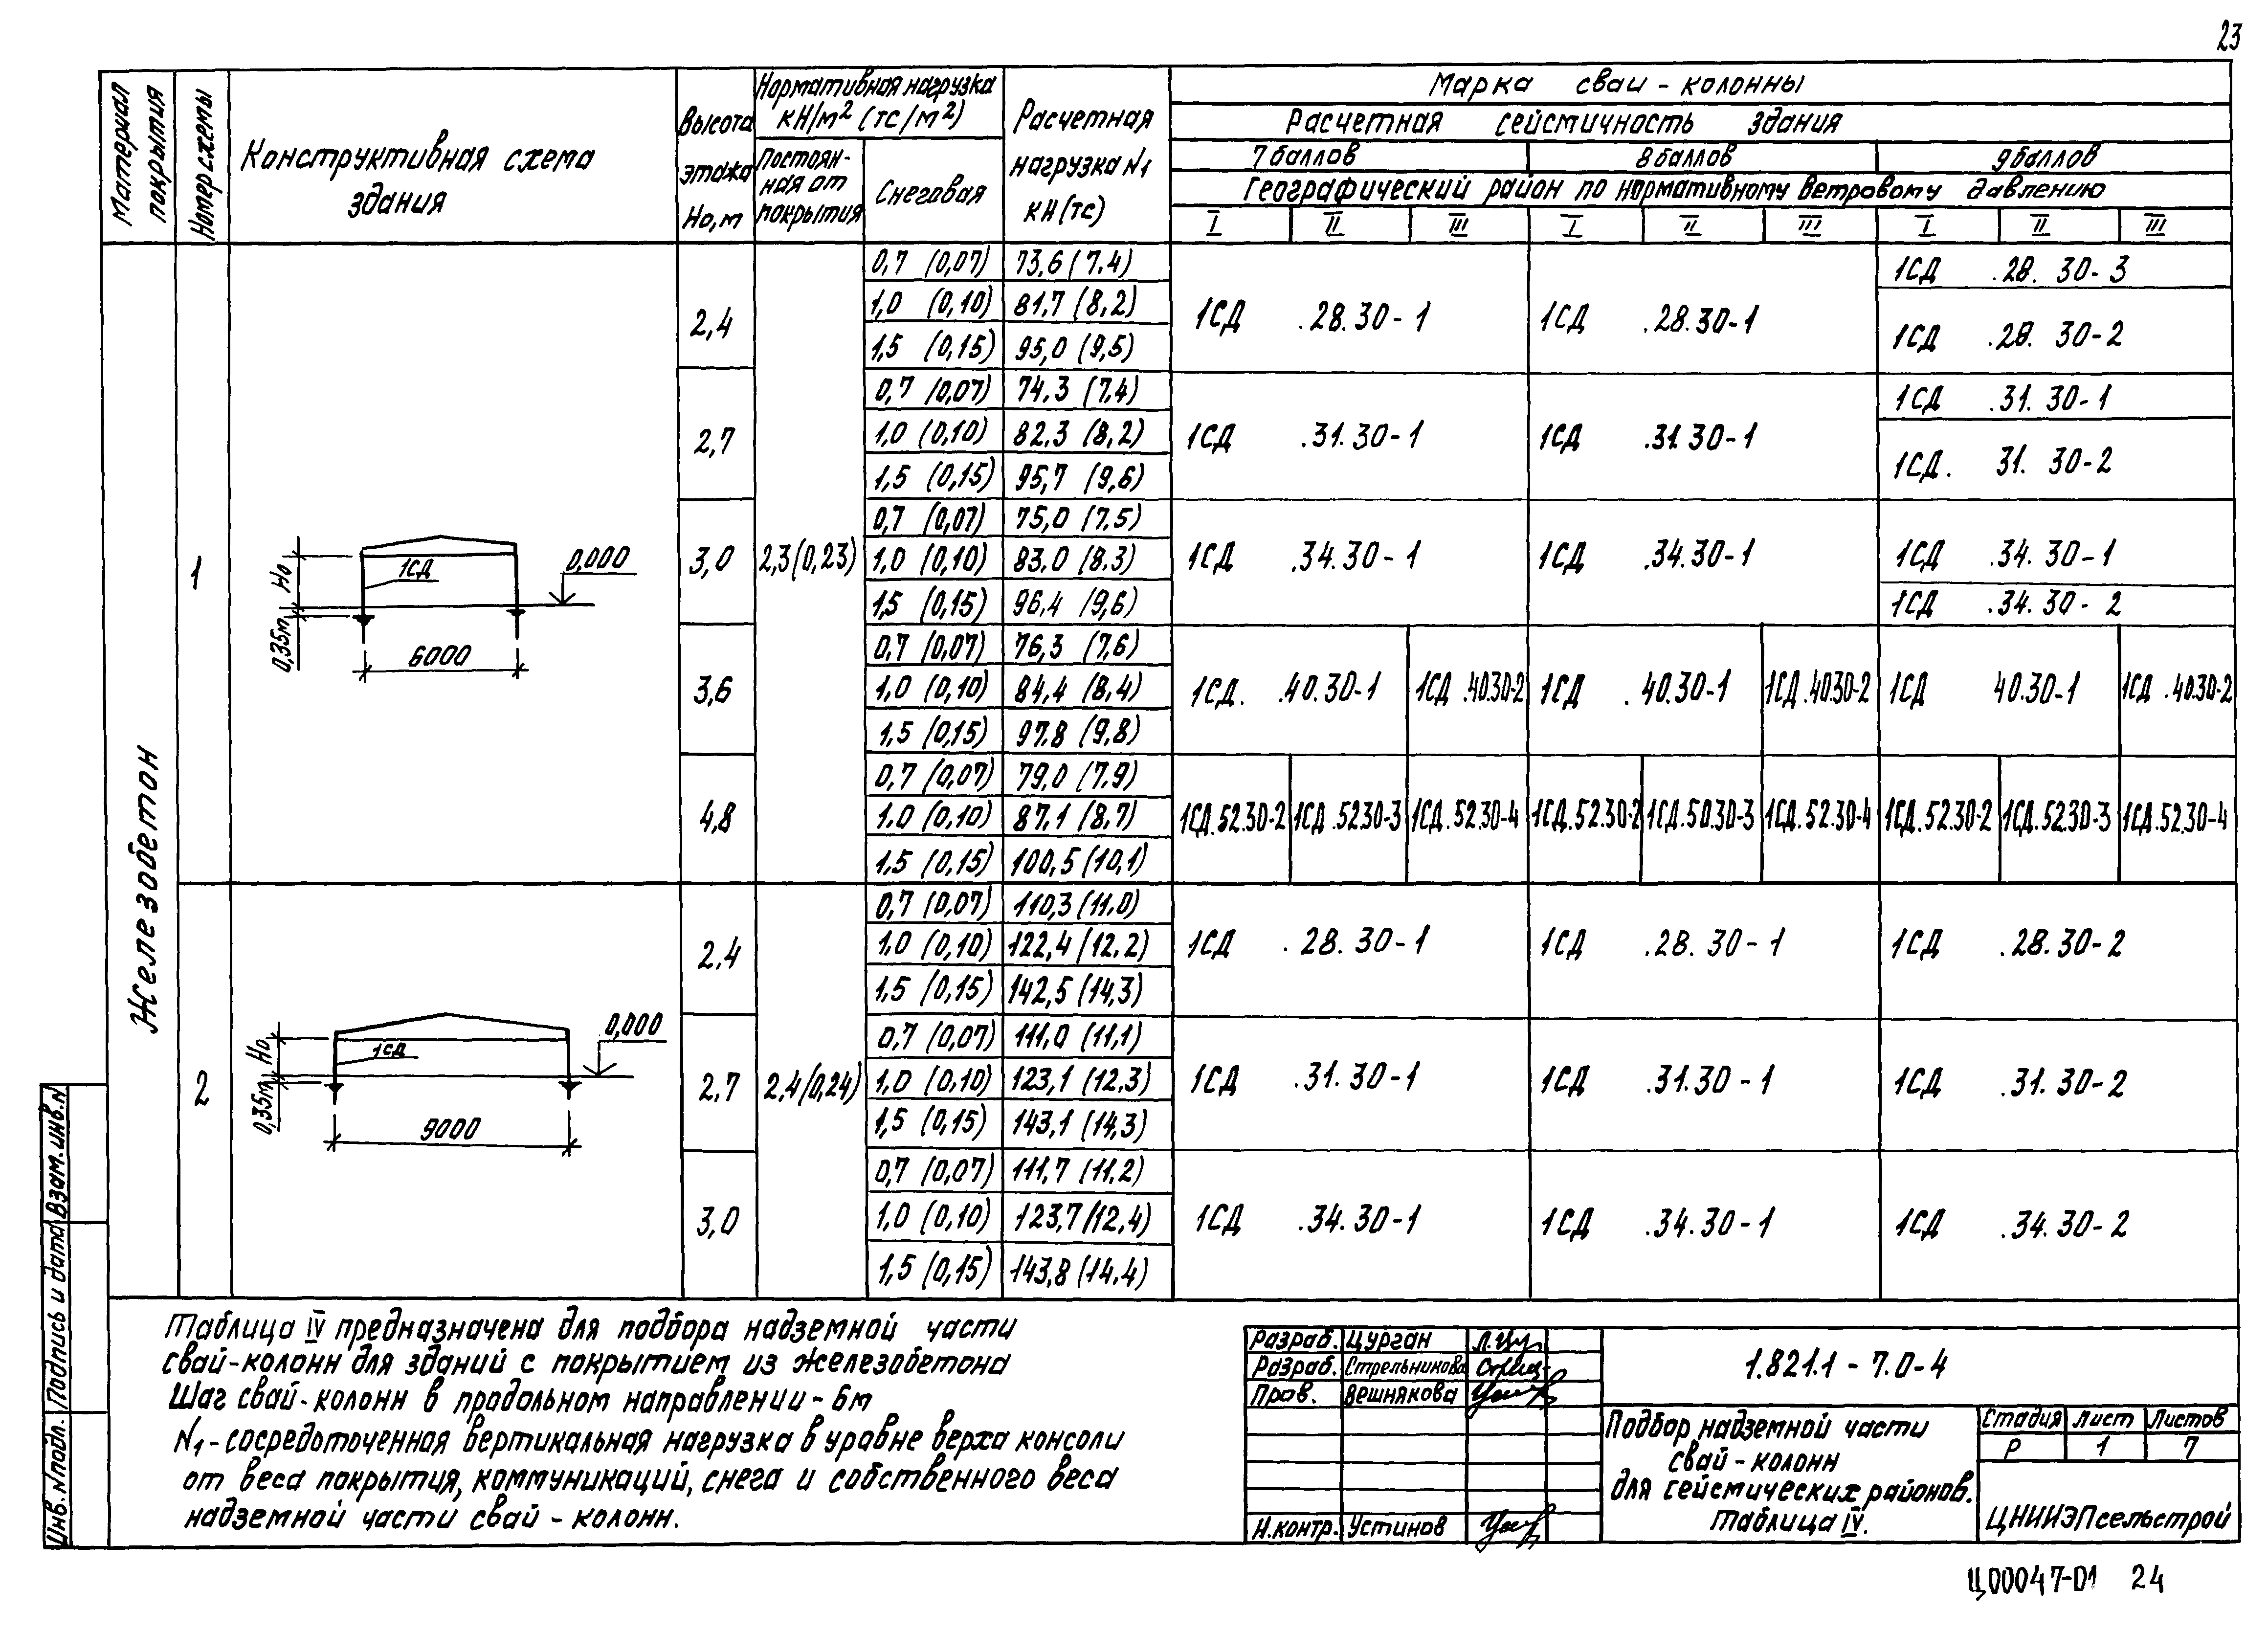 23
Материал покрытия
Номер схемы
Конструктивная схема здания
Высота этажа Но, м
Нормативная нагрузка кН/м² (тс/м²)
Постоян-ная от покрытия
Снеговая
Расчетная нагрузка N1 кН (тс)
Марка сваи - колонны
Расчетная сейсмичность здания
7 баллов 8 баллов 9 баллов
Географический район по нормативному ветровому давлению
I II III I II III I II III
Железобетон
1
Но
0,35м
1СД
0,000
6000
2,3(0,23)
2,4
0,7 (0,07) 73,6 (7,4)
1,0 (0,10) 81,7 (8,2)
1,5 (0,15) 95,0 (9,5)
1СД .28.30-1 1СД .28.30-1 1СД .28. 30-3
1СД .28. 30-2
2,7
0,7 (0,07) 74,3 (7,4)
1,0 (0,10) 82,3 (8,2)
1,5 (0,15) 95,7 (9,6)
1СД .31.30-1 1СД .31 30-1 1СД .31. 30-1
1СД. 31. 30-2
3,0
0,7 (0,07) 75,0 (7,5)
1,0 (0,10) 83,0 (8.3)
1,5 (0,15) 96,4 (9,6)
1СД .34.30-1 1СД .34.30-1 1СД .34. 30-1
1СД .34.30-2
3,6
0,7 (0,07) 76,3 (7,6)
1,0 (0,10) 84,4 (8,4)
1,5 (0,15) 97.8 (9,8)
1СД. .40.30-1 1СД .40.30-2 1СД .40.30-1 1СД .40.30-2 1СД 40.30-1 1СД .40.30-2
4,8
0,7 (0,07) 79,0 (7,9)
1,0 (0,10) 87,1 (8,7)
1,5 (0,15) 100,5 (10,1)
1СД.52.30-2 1СД.52.30-3 1СД.52.30-4 1СД.52.30-2 1СД.50.30-3 1СД.52.30-4 1СД.52.30-2 1СД.52.30-3 1СД.52.30-4
2
Но
0,35м
1СД
0,000
9000
2,4(0,24)
2,4
0,7 (0,07) 110,3 (11,0)
1,0 (0,10) 122,4 (12,2)
1,5 (0,15) 142,5 (14,3)
1СД .28.30-1 1СД .28.30-1 1СД .28.30-2
2,7
0,7 (0,07) 111,0 (11,1)
1,0 (0,10) 123,1 (12,3)
1,5 (0,15) 143,1 (14,3)
1СД .31.30-1 1СД .31.30-1 1СД .31.30-2
3,0
0,7 (0,07) 111,7 (11,2)
1,0 (0,10) 123,7 (12,4)
1,5 (0,15) 143,8 (14,4)
1СД .34.30-1 1СД .34.30-1 1СД .34.30-2
Таблица IV предназначена для подбора надземной части
свай-колонн для зданий с покрытием из железобетона
Шаг свай-колонн в продольном направлении - 6м
N1 - сосредоточенная вертикальная нагрузка в уравне верха консоли
от веса покрытия, коммуникаций, снега и собственного веса
надземной части свай - колонн.
Взам.инв.N
Подпись и дата
Инв.N подл.
Разраб. Цурган
Разраб. Стрельникова
Пров. Вешнякова
Н.контр. Устинов
1.821.1 - 7.0-4
Подбор надземной части
свай - колонн
для сейсмических районов.
Таблица IV.
Стадия Лист Листов
Р 1 7
ЦНИИЭПсельстрой
Ц00047-01 24